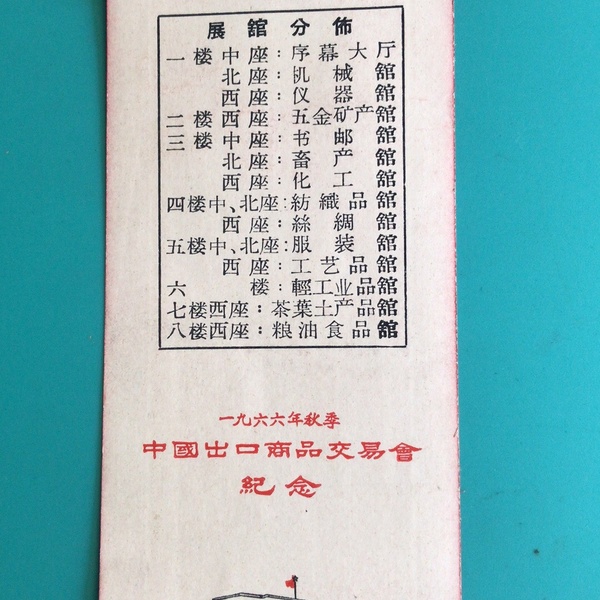 展舘分佈
一楼中座：序幕大厅
北座：机械舘
西座：仪器舘
二楼西座：五金矿产舘
三楼中座：书邮舘
北座：畜产舘
西座：化工舘
四楼中、北座：紡織品舘
西座：絲綢舘
五楼中、北座：服装舘
西座：工艺品舘
六楼：輕工业品舘
七楼西座：茶葉土产品舘
八楼西座：粮油食品舘
一九六六年秋季
中國出口商品交易會
紀念